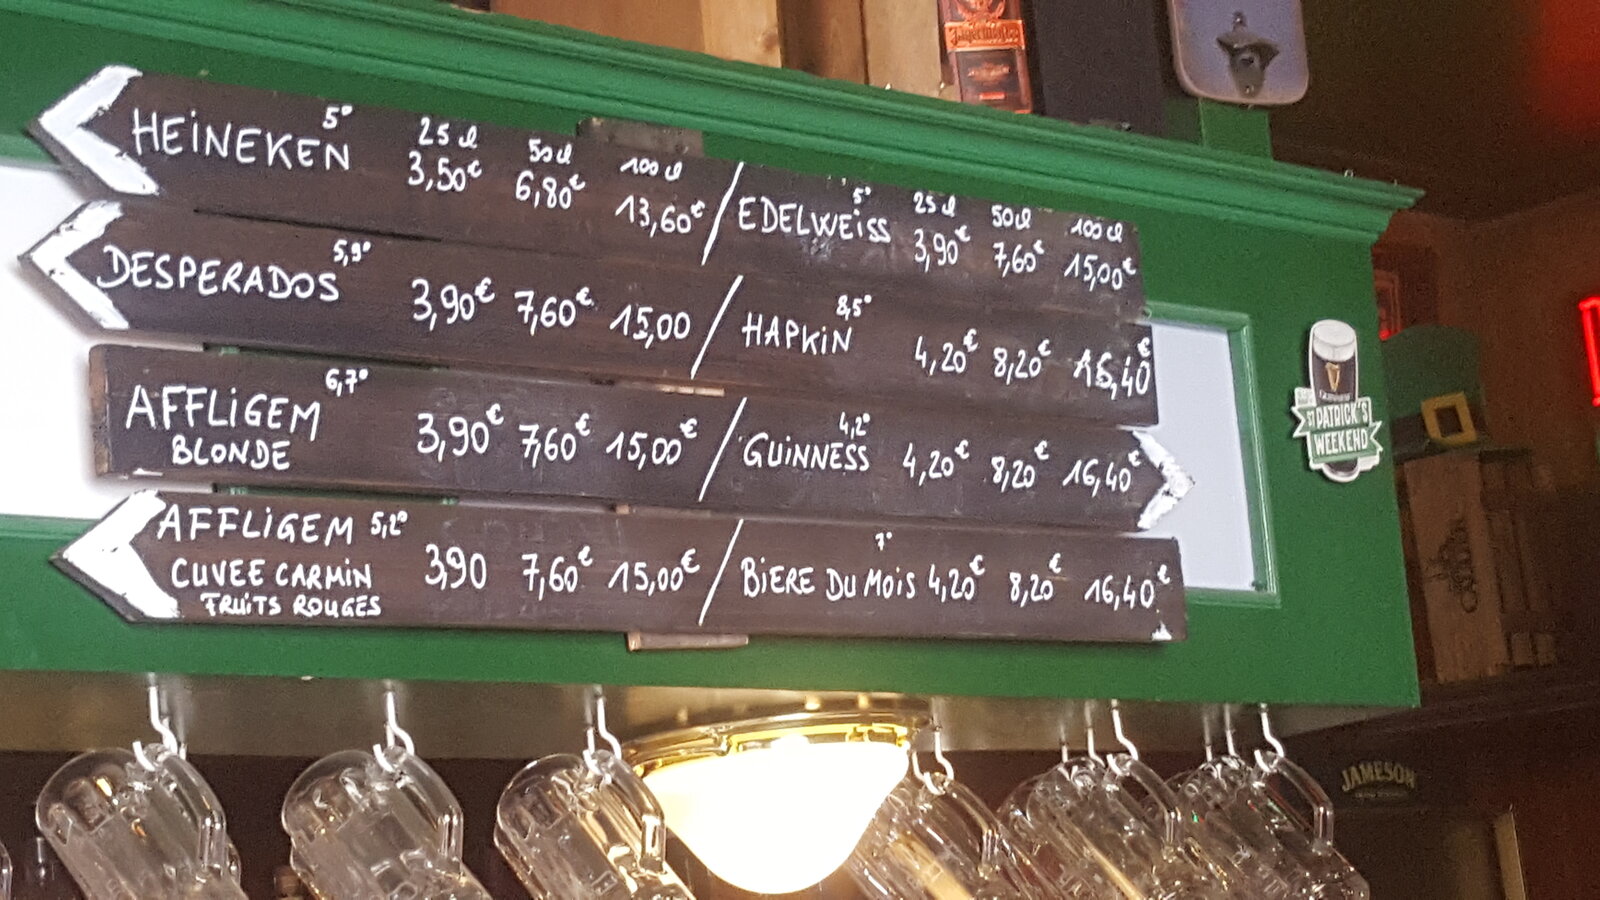 Jägermeister
HEINEKEN 5° 25 cl 50 cl 100 cl
3,50€ 6,80€ 13,60€ / EDELWEISS 5° 25 cl 50 cl 100 cl
3,90€ 7,60€ 15,00€
DESPERADOS 5,9° 3,90€ 7,60€ 15,00 / HAPKIN 8,5° 4,20€ 8,20€ 16,40€
AFFLIGEM 6,7°
BLONDE 3,90€ 7,60€ 15,00€ / GUINNESS 4,2° 4,20€ 8,20€ 16,40€
AFFLIGEM 5,2°
CUVEE CARMIN 3,90 7,60€ 15,00€ / BIERE DU MOIS 7° 4,20€ 8,20€ 16,40€
FRUITS ROUGES
GUINNESS
ST PATRICK'S
WEEKEND
JAMESON